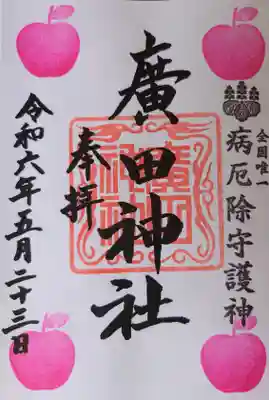 全国唯一
病厄除守護神
廣田神社
奉拝
令和六年五月二十三日
廣田
神社